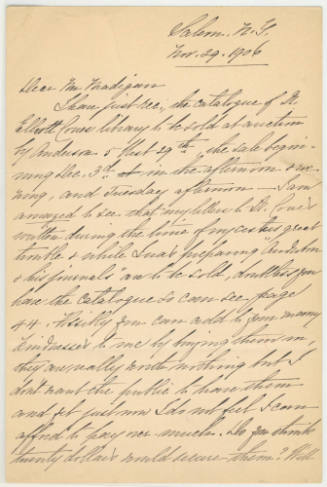 Salem. N.Y.
Nov. 29. 1906
Dear Mr Madigan
I have just rec. the catalogue of Dr.
Elliott Coues library to be sold at auction
by Anderson 5 West 29th, the sale begin-
ning Dec. 3rd in the afternoon & eve-
ning, and Tuesday afternoon — I am
amazed to see that my letters to Dr. Coues
written during the time of my great
trouble & while I was preparing Audubon
& his journals" are to be sold, doubtless you
have the catalogue so can see page
44. Possibly you can add to your many
kindnesses to me by buying them in,
they are really worth nothing but I
don't want the public to have them
and yet just now I do not feel I can
afford to pay very much. Do you think
twenty dollars would secure them? Will